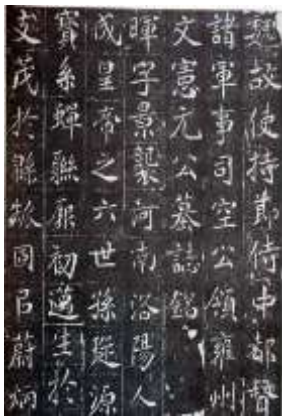 魏故使持節侍中都督
諸軍事司空公領雍州
文憲元公墓誌銘
暉字景襲河南洛陽人
成皇帝之六世孫源
寶系蟬聯厥初邁生於
茂於緜瓞固㠯蔚炳